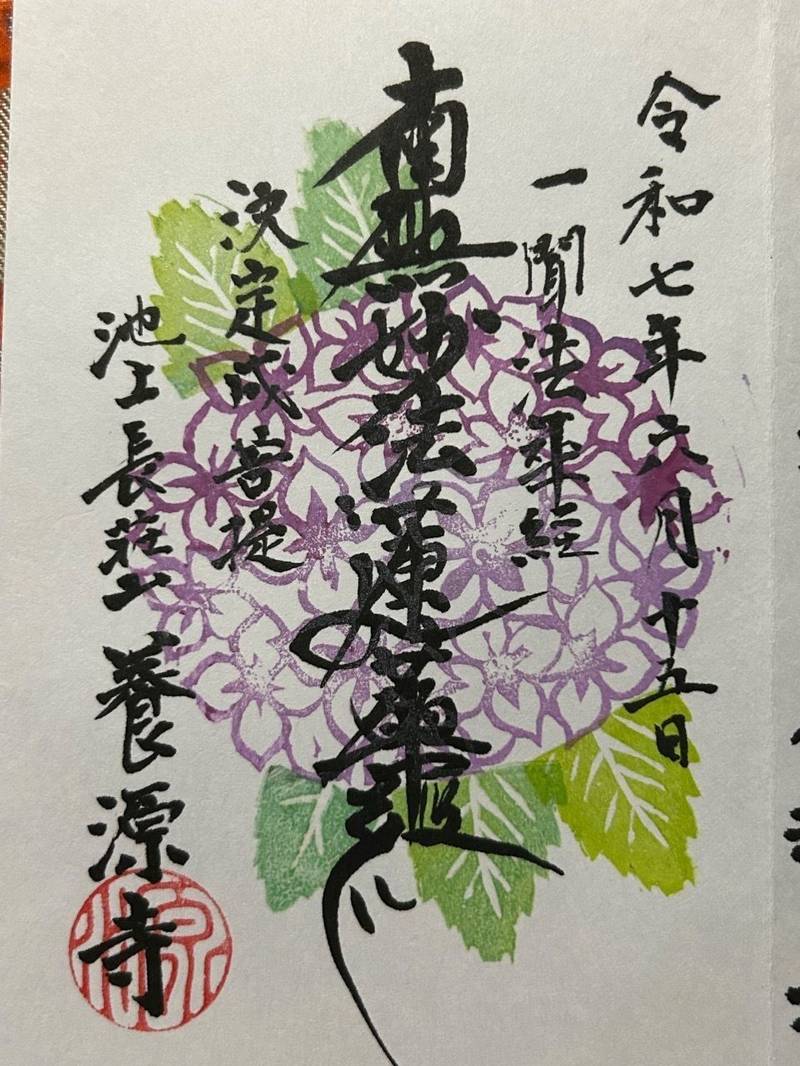 令和七年六月十五日
一聞法華経
南無妙法蓮華経
決定成菩提
池上長荘山 養源寺